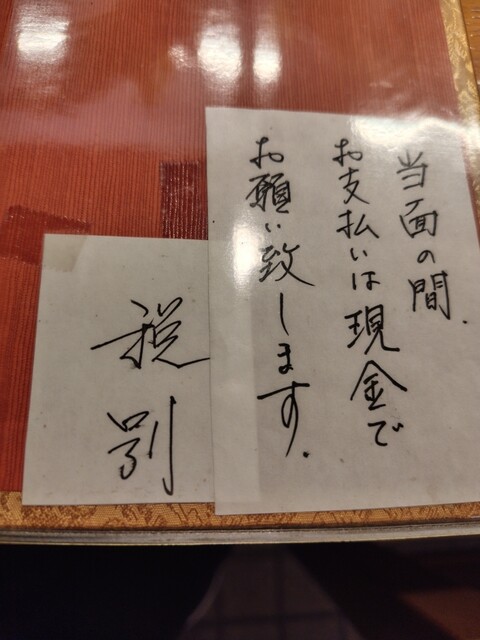 当面の間.
お支払いは現金で
お願い致します.
税別